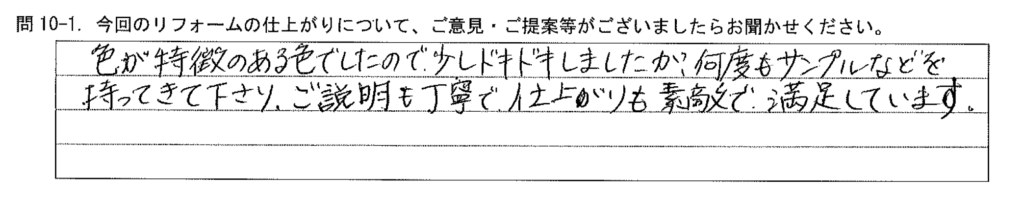 問10-1. 今回のリフォームの仕上がりについて、ご意見・ご提案等がございましたらお聞かせください。
色が特徴のある色でしたので、少しドキドキしましたが、何度もサンプルなどを
持ってきて下さり、ご説明も丁寧で、仕上がりも素敵で、満足しています。